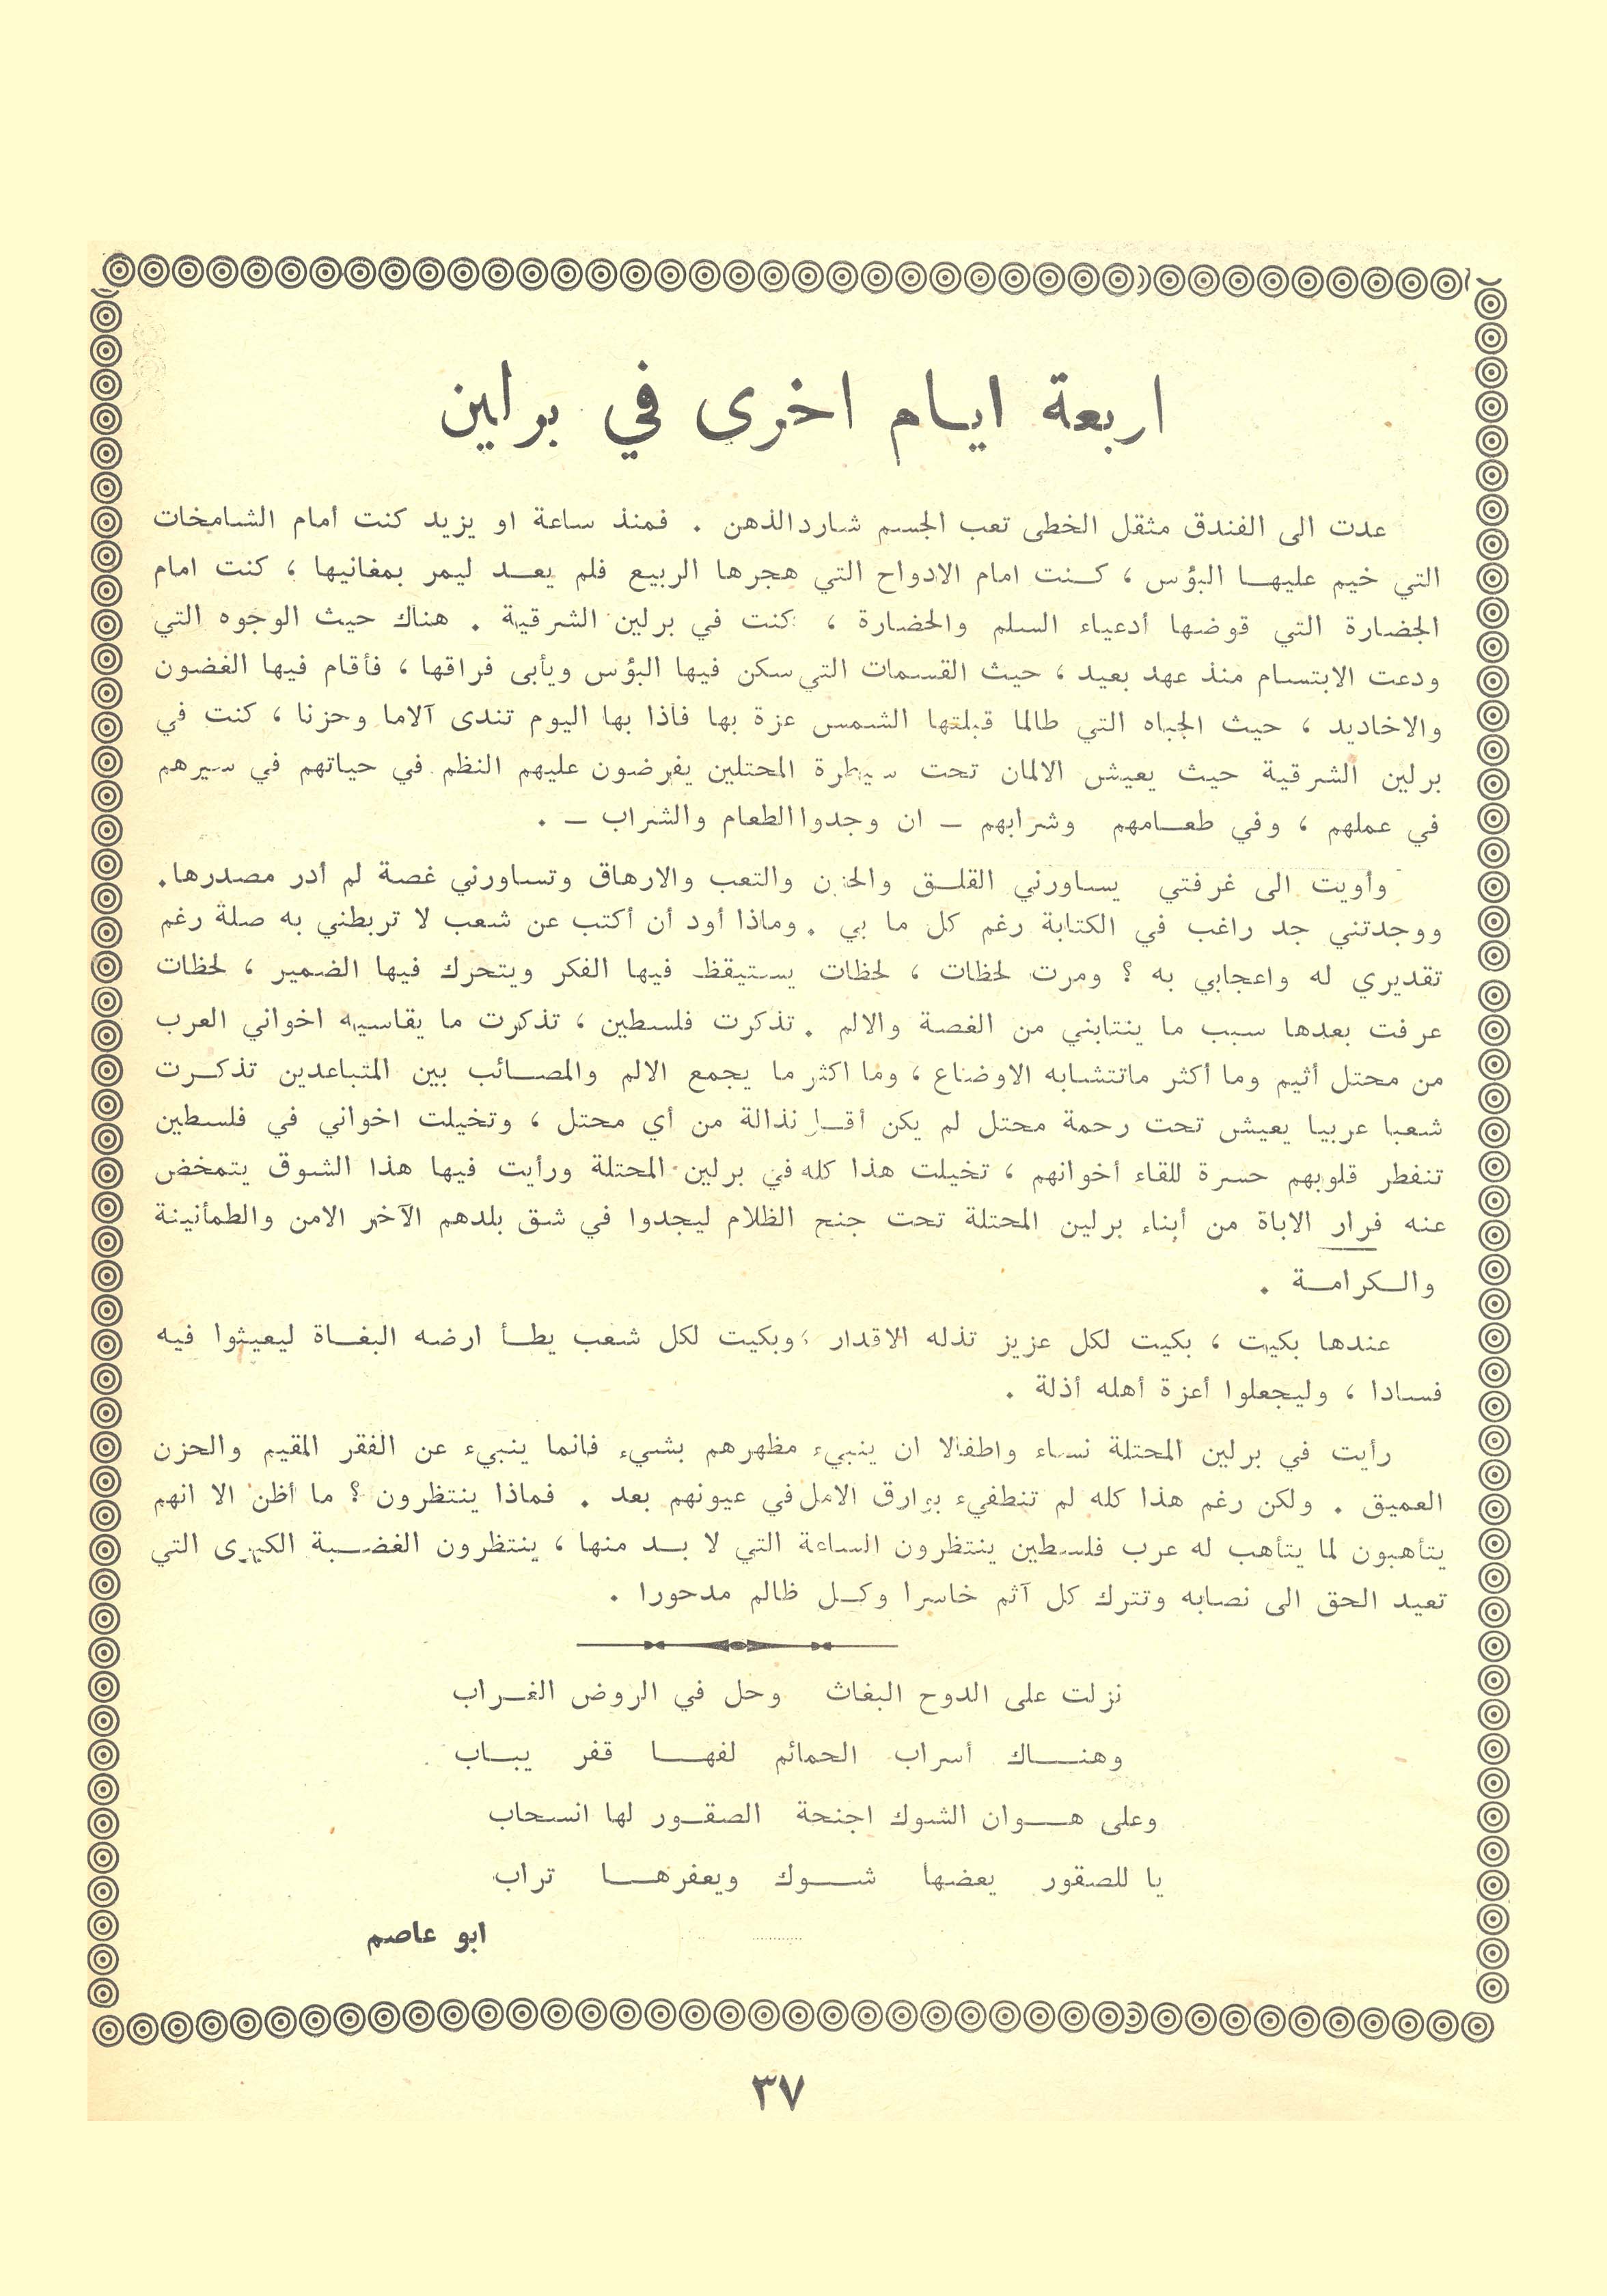 اربعة ايام اخرى في برلين
عدت الى الفندق مثقل الخطى تعب الجسم شارد الذهن . فمنذ ساعة او يزيد كنت أمام الشامخات
التي خيم عليها البؤس ، كنت امام الادواح التي هجرها الربيع فلم يعد ليمر بمغانيها ، كنت امام
الحضارة التي قوضها أدعياء السلم والحضارة ، كنت في برلين الشرقية . هناك حيث الوجوه التي
ودعت الابتسام منذ عهد بعيد ، حيث القسمات التي سكن فيها البؤس ويأبى فراقها ، فأقام فيها الغضون
والاخاديد ، حيث الجباه التي طالما قبلتها الشمس عزة بها فاذا بها اليوم تندى آلاما وحزنا ، كنت في
برلين الشرقية حيث يعيش الالمان تحت سيطرة المحتلين يفرضون عليهم النظم في حياتهم في سيرهم
في عملهم ، وفي طعامهم وشرابهم – ان وجدوا الطعام والشراب – .
وأويت الى غرفتي يساورني القلق والحزن والتعب والارهاق وتساورني غصة لم أدر مصدرها.
ووجدتني جد راغب في الكتابة رغم كل ما بي . وماذا أود أن أكتب عن شعب لا تربطني به صلة رغم
تقديري له واعجابي به ؟ ومرت لحظات ، لحظات يستيقظ فيها الفكر ويتحرك فيها الضمير ، لحظات
عرفت بعدها سبب ما ينتابني من الغصة والالم . تذكرت فلسطين ، تذكرت ما يقاسيه اخواني العرب
من محتل أثيم وما أكثر ماتتشابه الاوضاع ، وما اكثر ما يجمع الالم والمصائب بين المتباعدين تذكرت
شعبا عربيا يعيش تحت رحمة محتل لم يكن أقل نذالة من أي محتل ، وتخيلت اخواني في فلسطين
تنفطر قلوبهم حسرة للقاء أخوانهم ، تخيلت هذا كله في برلين المحتلة ورأيت فيها هذا الشوق يتمخض
عنه فرار الاباة من أبناء برلين المحتلة تحت جنح الظلام ليجدوا في شق بلدهم الآخر الامن والطمأنينة
والكرامة .
عندها بكيت ، بكيت لكل عزيز تذله الاقدار ، وبكيت لكل شعب يطأ ارضه البغاة ليعيثوا فيه
فسادا ، وليجعلوا أعزة أهله أذلة .
رأيت في برلين المحتلة نساء واطفالا ان ينبيء مظهرهم بشيء فانما ينبيء عن الفقر المقيم والحزن
العميق . ولكن رغم هذا كله لم تنطفيء بوارق الامل في عيونهم بعد . فماذا ينتظرون ؟ ما أظن الا انهم
يتأهبون لما يتأهب له عرب فلسطين ينتظرون الساعة التي لا بد منها ، ينتظرون الغضبة الكبرى التي
تعيد الحق الى نصابه وتترك كل آثم خاسرا وكل ظالم مدحورا .
نزلت على الدوح البغاث وحل في الروض الغراب
وهناك أسراب الحمائم لفها قفر يباب
وعلى هوان الشوك اجنحة الصقور لها انسحاب
يا للصقور يعضها شوك ويعفرها تراب
ابو عاصم
٣٧